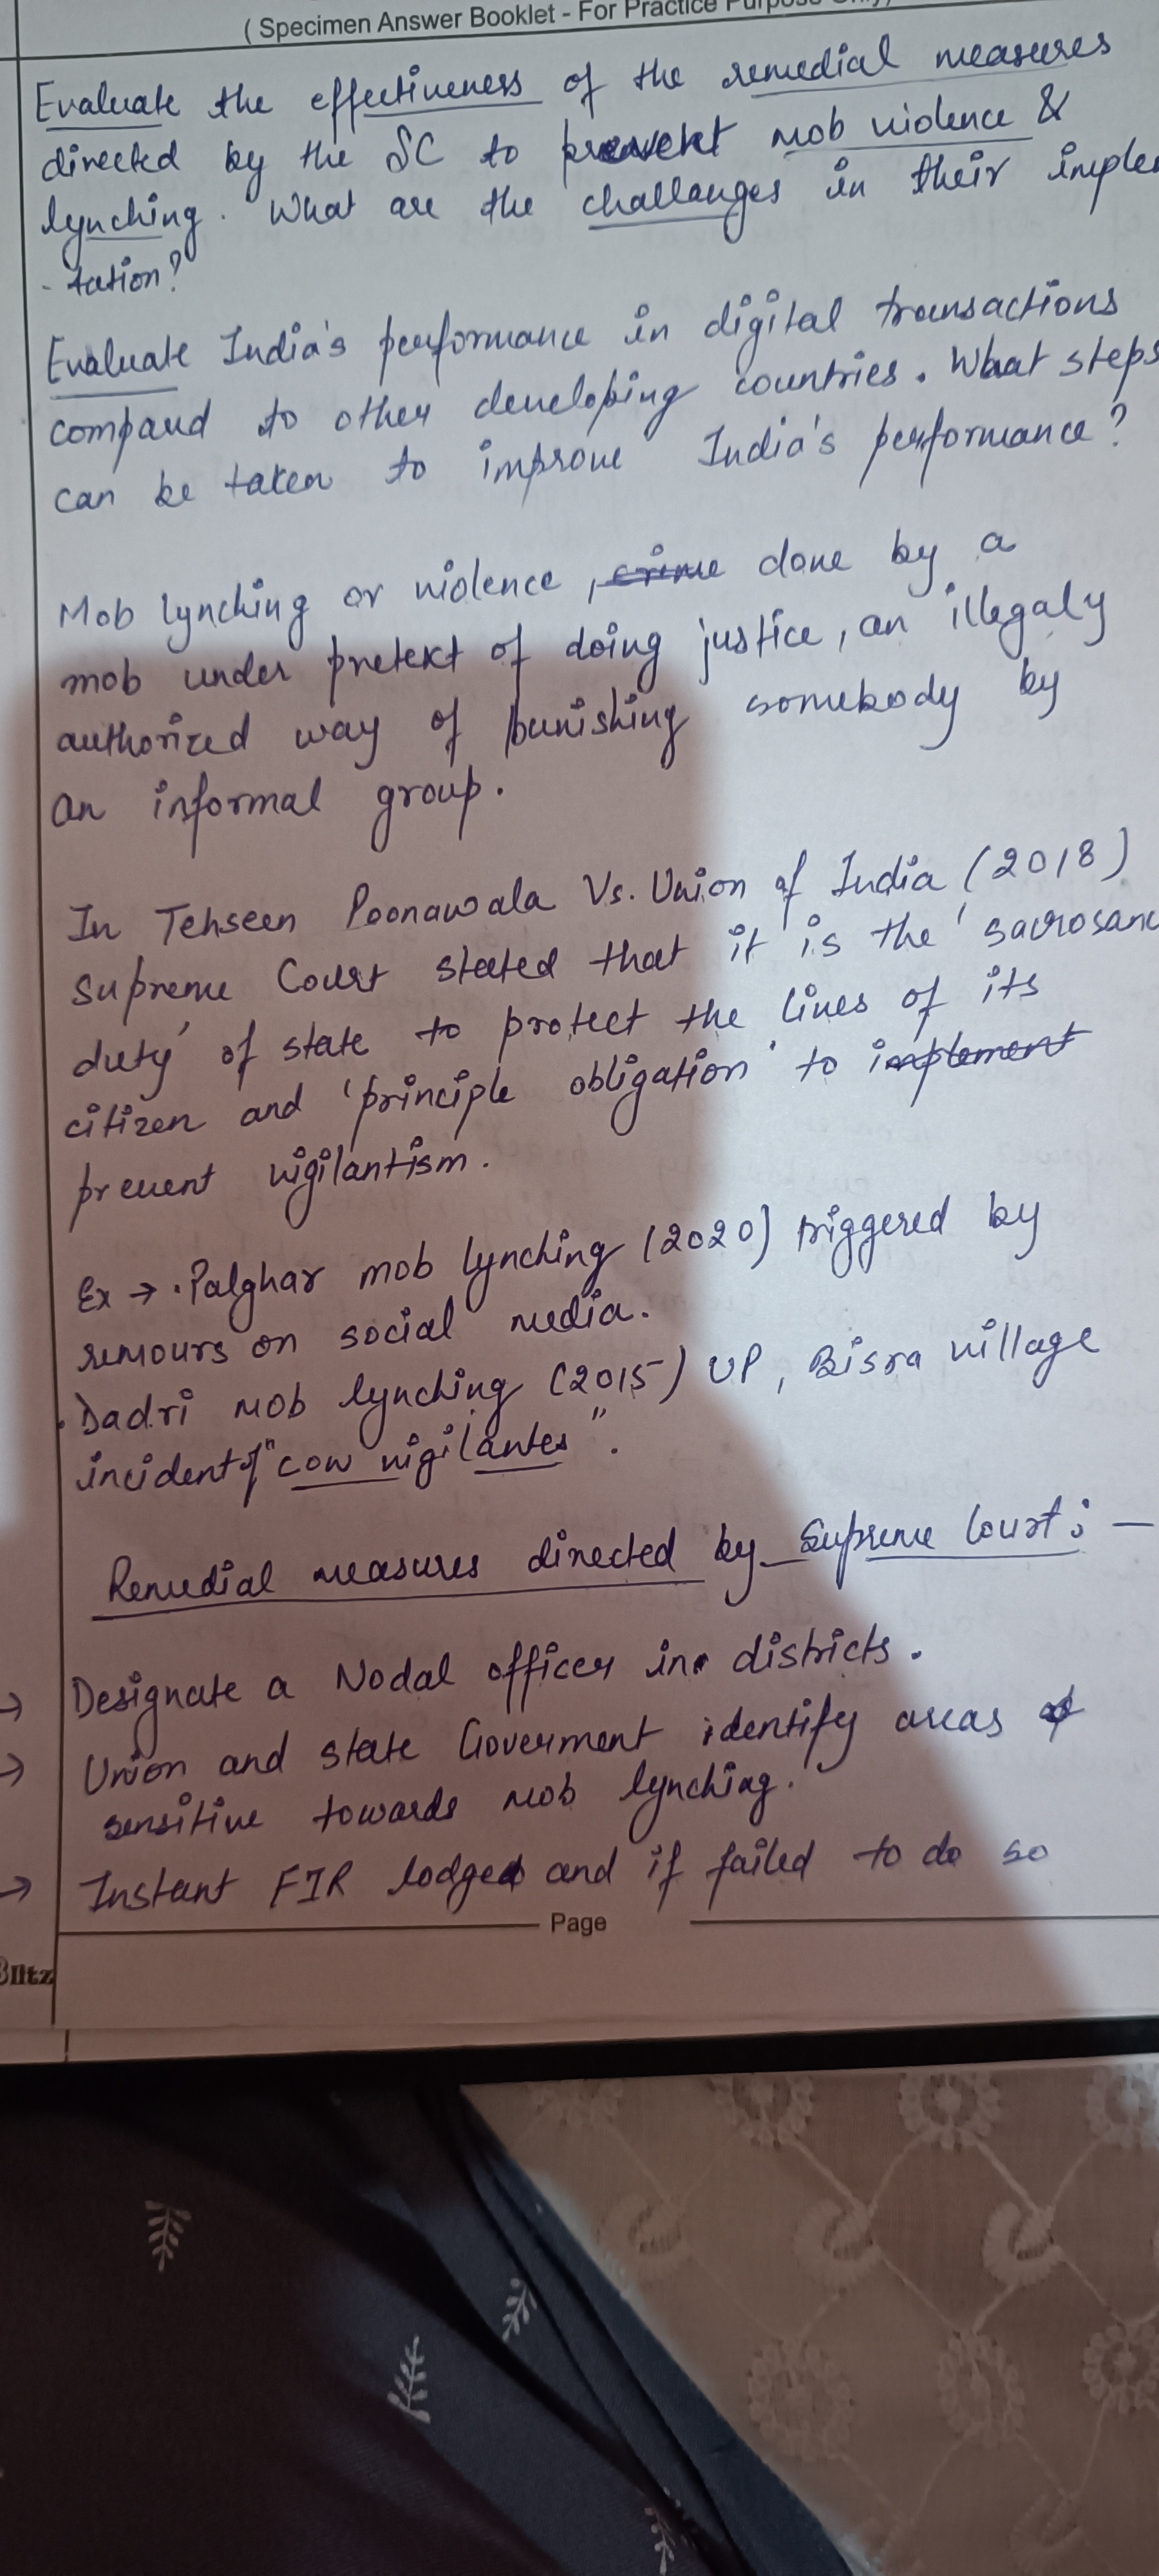 ( Specimen Answer Booklet - For Practice Purpose Only)
Evaluate the effectiveness of the remedial measures
directed by the SC to prevent mob violence &
lynching. What are the challanges in their implem
- tation?
Evaluate India's performance in digital transactions
compared to other developing countries. What steps
can be taken to improve India's performance?
Mob lynching or violence, crime done by a
mob under pretext of doing justice, an illegaly
authorized way of punishing somebody by
an informal group.
In Tehseen Poonawala Vs. Union of India (2018)
Supreme Court stated that it is the 'sacrosanc
duty' of state to protect the lives of its
citizen and 'principle obligation' to implement
prevent vigilantism.
Ex → . Palghar mob lynching (2020) triggered by
rumours on social media.
. Dadri mob lynching (2015) UP, Bisra village
incident of "cow vigilantes".
Remedial measures directed by Supreme Court : —
→ Designate a Nodal officer in districts.
→ Union and state Goverment identify areas of
sensitive towards mob lynching.
→ Instant FIR lodged and if failed to do so
Page
Blitz